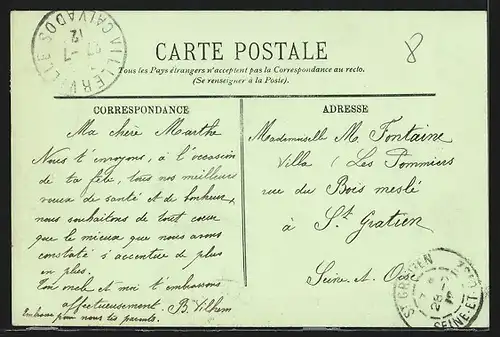 VILLERVILLE
27 -7
12
CALVADOS
CARTE POSTALE
8
Tous les Pays étrangers n'acceptent pas la Correspondance au recto.
(Se renseigner à la Poste).
CORRESPONDANCE
Ma chère Marthe
Nous t'envoyons, à l'occasion
de ta fête, tous nos meilleurs
vœux de santé et de bonheur,
nous souhaitons de tout cœur
que le mieux que nous avons
constaté s'accentue de plus
en plus.
Ton oncle et moi t'embrassons
affectueusement. B. Vilhem
Embrasse pour nous tes parents.
ADRESSE
Mademoiselle M. Fontaine
Villa (Les Pommiers
rue du Bois meslé
à St Gratien
Seine-et-Oise
ST GRATIEN
28 -7
SEINE-ET-OISE